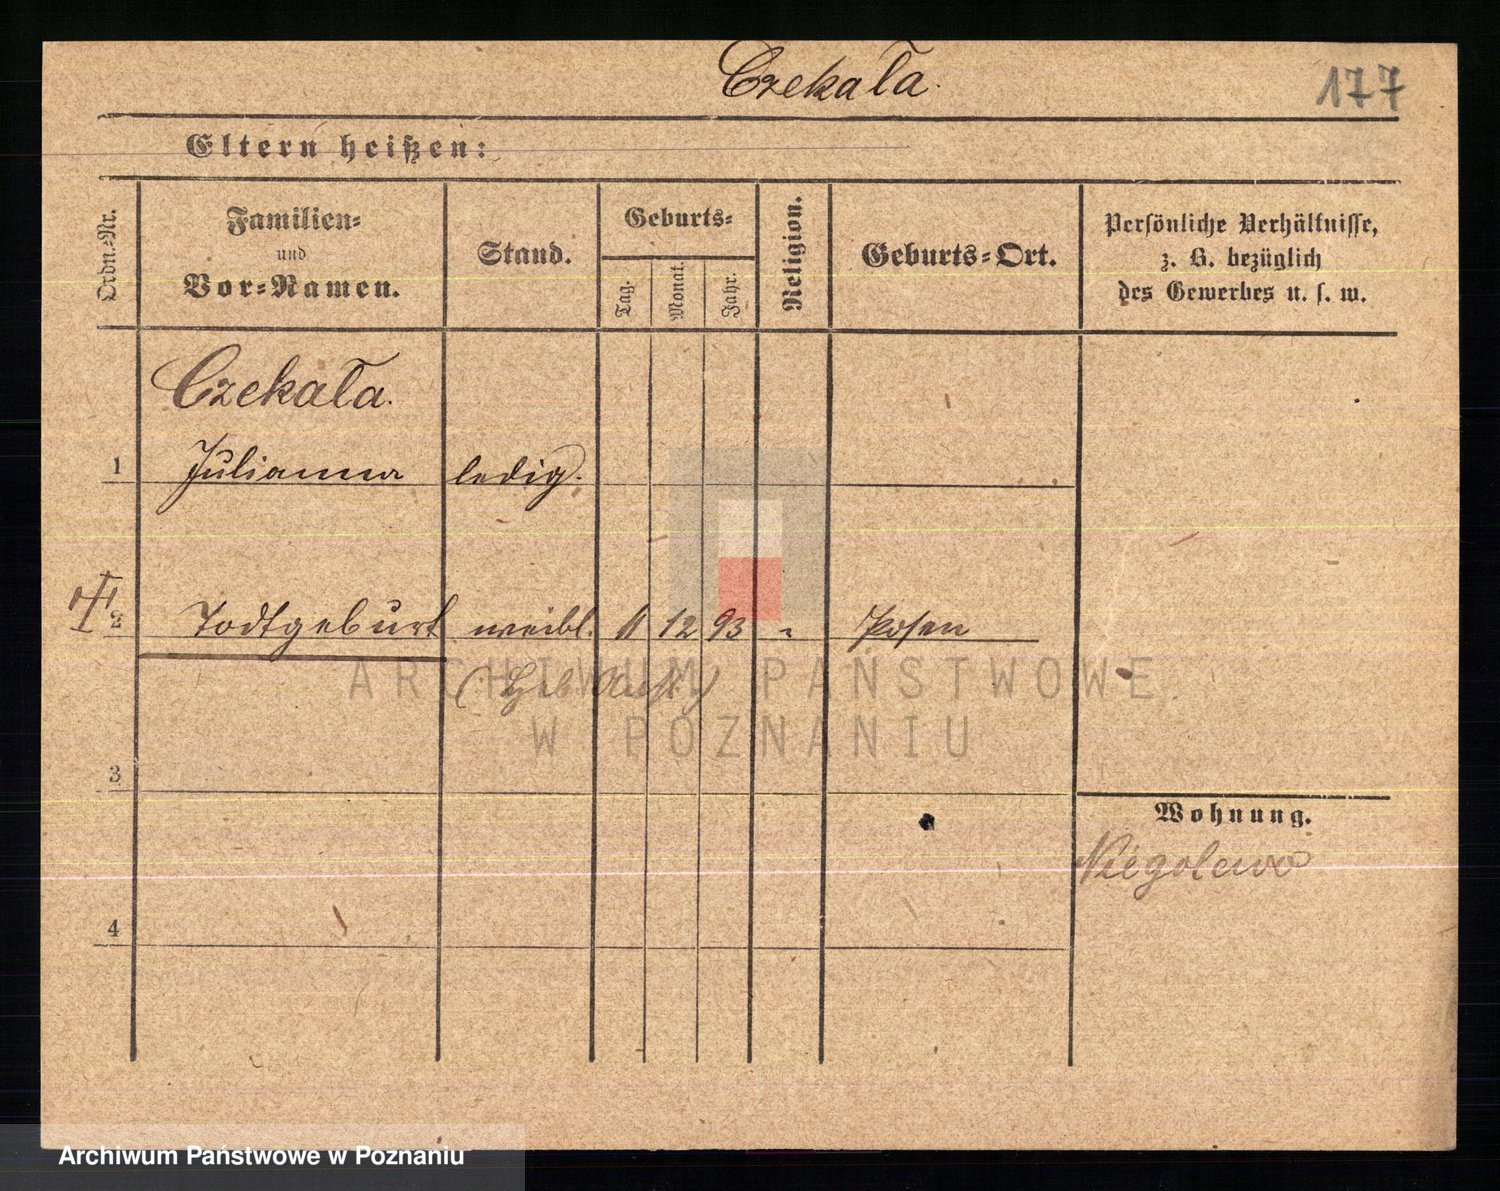 Czekała.
177
Eltern heißen:
Ordn.=Nr.
Familien=
und
Vor=Namen.
Stand.
Geburts=
Tag.
Monat.
Jahr.
Religion.
Geburts=Ort.
Persönliche Verhältnisse,
z. B. bezüglich
des Gewerbes u. s. w.
Czekała.
1 Julianna ledig.
2 Todtgeburt weibl. 11 12 93 Posen
ARCHIWUM PAŃSTWOWE
W POZNANIU
3
Wohnung.
Niegolewo
4
Archiwum Państwowe w Poznaniu